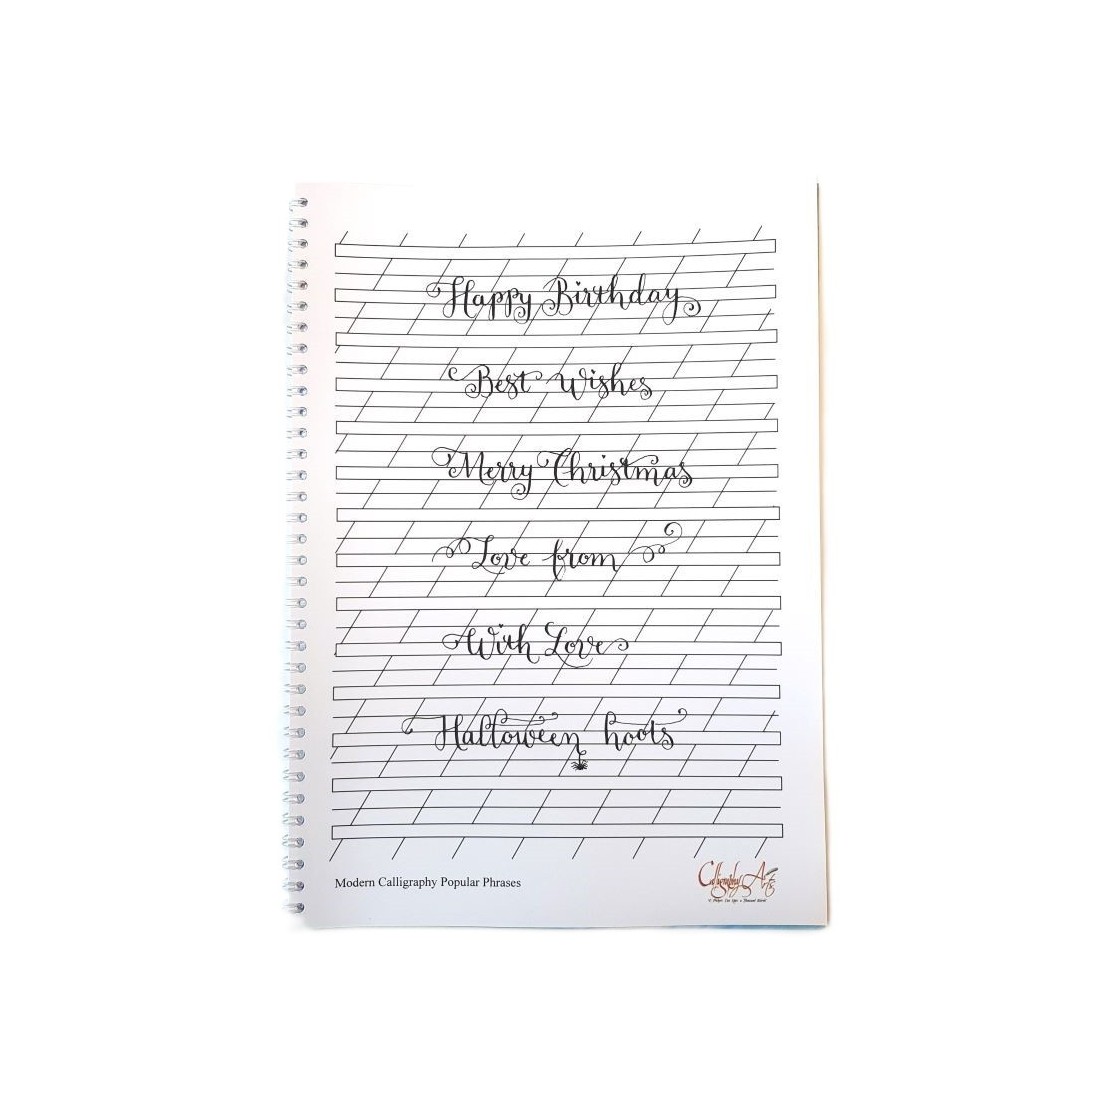 Happy Birthday
Best Wishes
Merry Christmas
Love from
With Love
Halloween hoots
Modern Calligraphy Popular Phrases
Calligraphy Arts